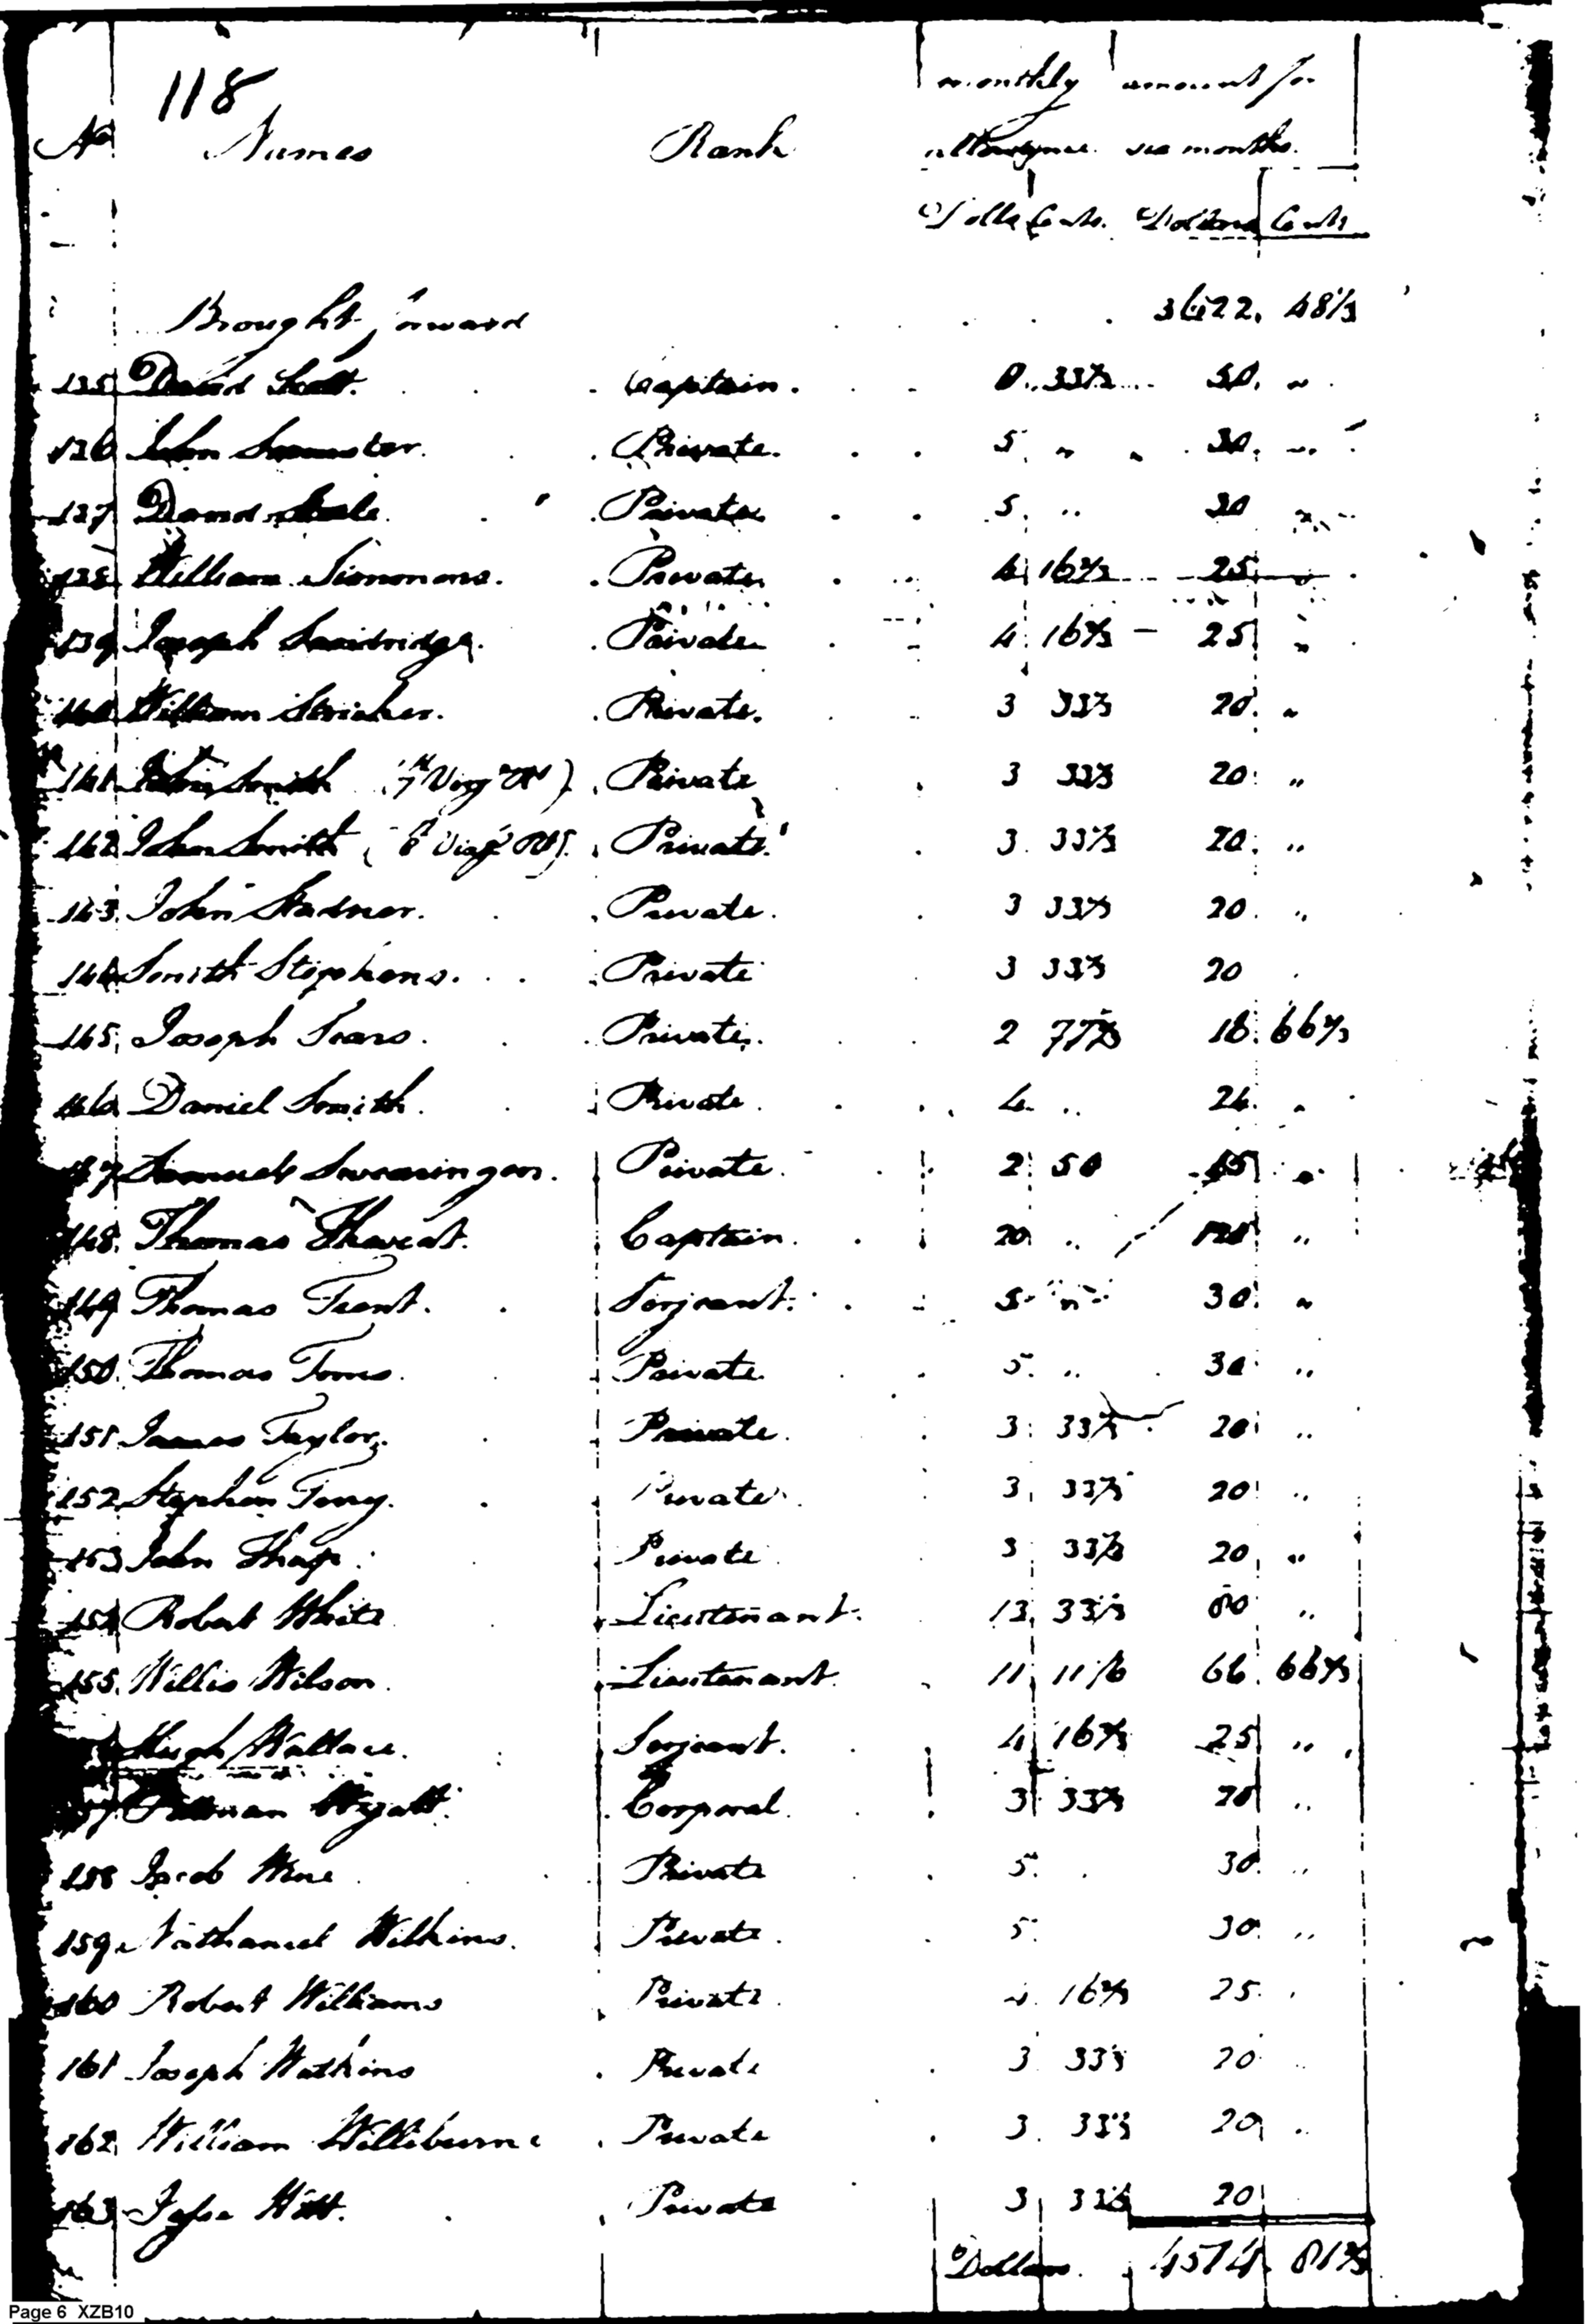 118
monthly amount for
No Names Rank allowance six months
Dolls Cents. Dollars Cents
Brought forward 3622. 48 1/3
135 David Scott. Captain. 8. 33 1/3 50. "
136 John Private. 5 " 30. "
137 David Private 5. " 30 "
138 William Simmons. Private 4 16 2/3 25 "
139 Joseph Sandridge. Private 4. 16 2/3 25 "
140 William Stricker. Private. 3 33 1/3 20. "
141 John Smith (7th Virga Rt) Private 3 33 1/3 20. "
142 John Smith (8 Virga Rt). Private 3. 33 1/3 20. "
143. John Stadner. Private. 3 33 1/3 20. "
144 Smith Stephens. Private 3 33 1/3 20
145. Joseph Sears. Private. 2 77 18. 66 2/3
146 Daniel Smith. Private. 4. " 24. "
147 Samuel Swearingen. Private. 2. 50 15 "
148. Thomas Thweat. Captain. 20 " 120 "
149 Thomas Trent. Serjeant. 5. " 30. "
150. Thomas Toms. Private. 5. " 30 "
151 James Taylor. Private. 3. 33 1/3 20 "
152 Stephen Terry. Private. 3. 33 1/3 20 "
153 John Tharp. Private. 3. 33 1/3 20. "
154 Robert White Lieutenant. 13. 33 1/3 80 "
155. Willis Wilson. Lieutenant. 11. 11 1/6 66. 66 2/3
Hugh Wallace. Serjeant. 4 16 2/3 25 "
Wyatt. Corporal. 3 33 1/3 20 "
158 Jacob Wine Private 5. 30. "
159. Nathaniel Wilkins. Private. 5. 30. "
160 Robert Williams Private. 4. 16 2/3 25.
161 Joseph Watkins Private 3. 33 1/3 20
162 William Williburne Private 3. 33 1/3 20
163 Jesse Witt. Private 3 33 1/3 20
Dollars. 4514. 81 2/3
Page 6 XZB10